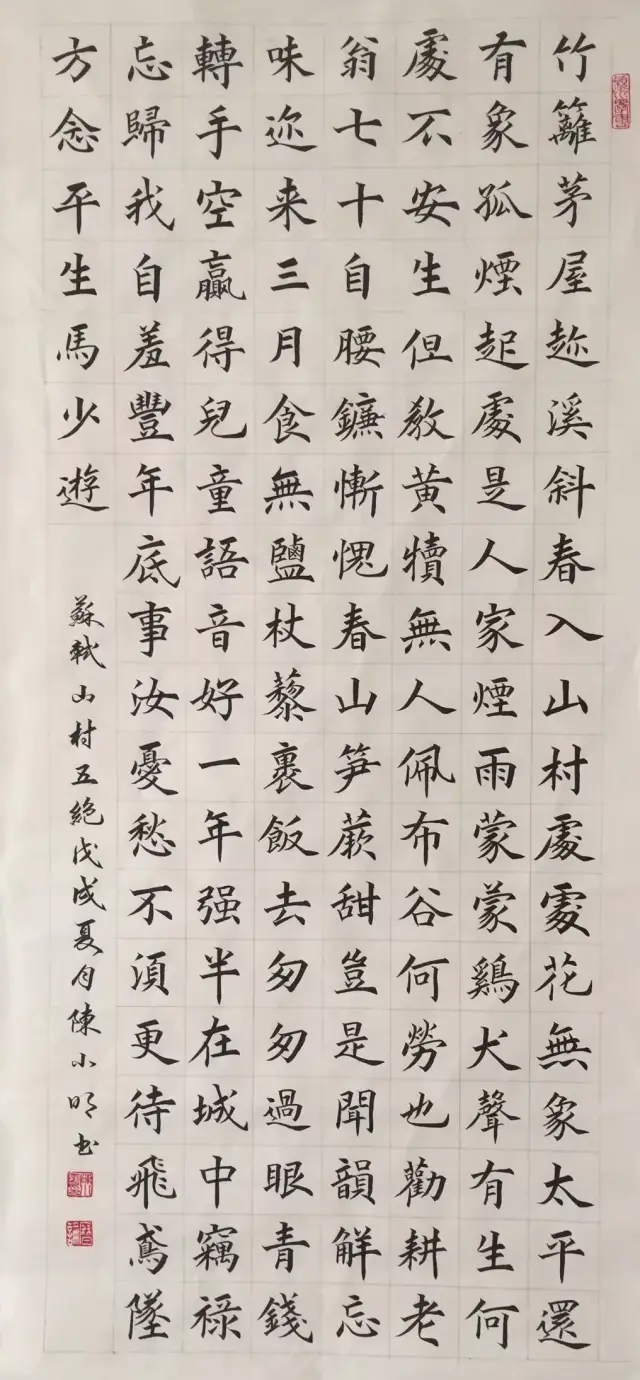 竹籬茅屋趂溪斜春入山村處處花無象太平還
有象孤煙起處是人家煙雨蒙蒙鷄犬聲有生何
處不安生但教黄犢無人佩布谷何勞也勸耕老
翁七十自腰鐮慚愧春山笋蕨甜豈是聞韻解忘
味迩来三月食無鹽杖藜裹飯去匆匆過眼青錢
轉手空贏得兒童語音好一年强半在城中竊禄
忘歸我自羞豐年底事汝憂愁不湏更待飛鳶墜
方念平生馬少遊
蘇軾山村五絕戊戌夏月陳小明书